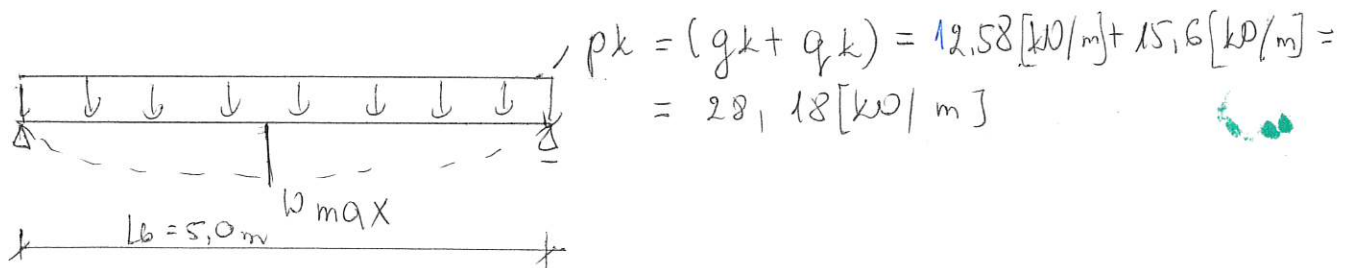 pk = (gk + qk) = 12,58 [kN/m] + 15,6 [kN/m] =
= 28,18 [kN/m]
wmax
Lb = 5,0 m